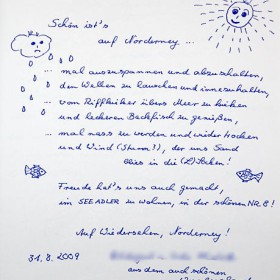 Schön ist's
auf Norderney ...
... mal auszuspannen und abzuschalten,
den Wellen zu lauschen und innezuhalten,
... vom Riffkieker übers Meer zu kieken
und leckeren Backfisch zu genießen,
... mal nass zu werden und wieder trocken
und Wind (Sturm?), der uns Sand
blies in die (2) Socken!
Freude hat's uns auch gemacht,
im SEEADLER zu wohnen, in der schönen NR. 8!
Auf Wiedersehen, Norderney!
31.8.2009
aus dem auch schönen